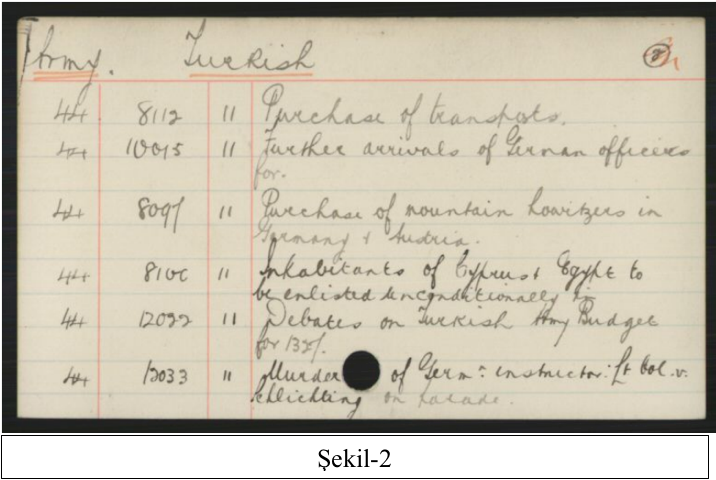 Army. Turkish
44 8112 " Purchase of transports.
44 10015 " Further arrivals of German officers
for.
44 " Purchase of mountain howitzers in
Germany & Austria.
44 " Inhabitants of Cyprus & Egypt to
be enlisted unconditionally in
44 12022 " Debates on Turkish Army Budget
for
44 12033 " Murder of Germn instructor: Lt Col. v.
Schlichting on parade.
Şekil-2